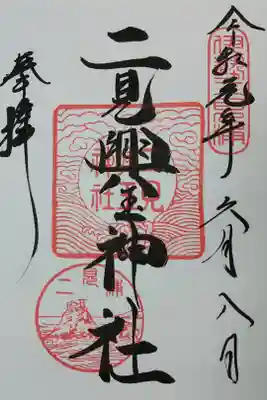 令和元年六月八日
二見興玉神社
奉拝